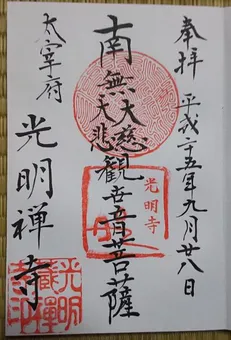 奉拝
平成二十五年九月廿八日
南無大慈大悲観世音菩薩
光明寺
太宰府
光明禅寺